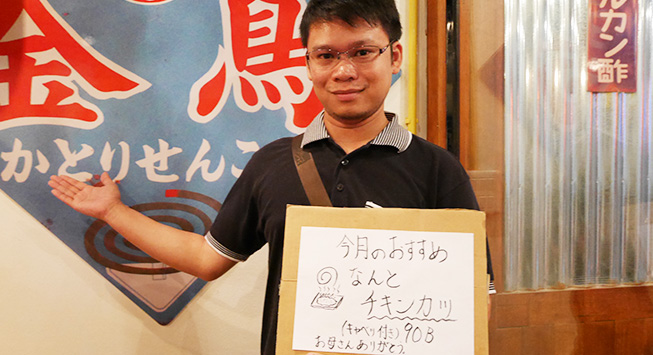 金鳥
かとりせんこ
ルカン酢
今月のおすすめ
なんと
チキンカツ
(キャベツ付ミ) 90B
お母さんありがとう。